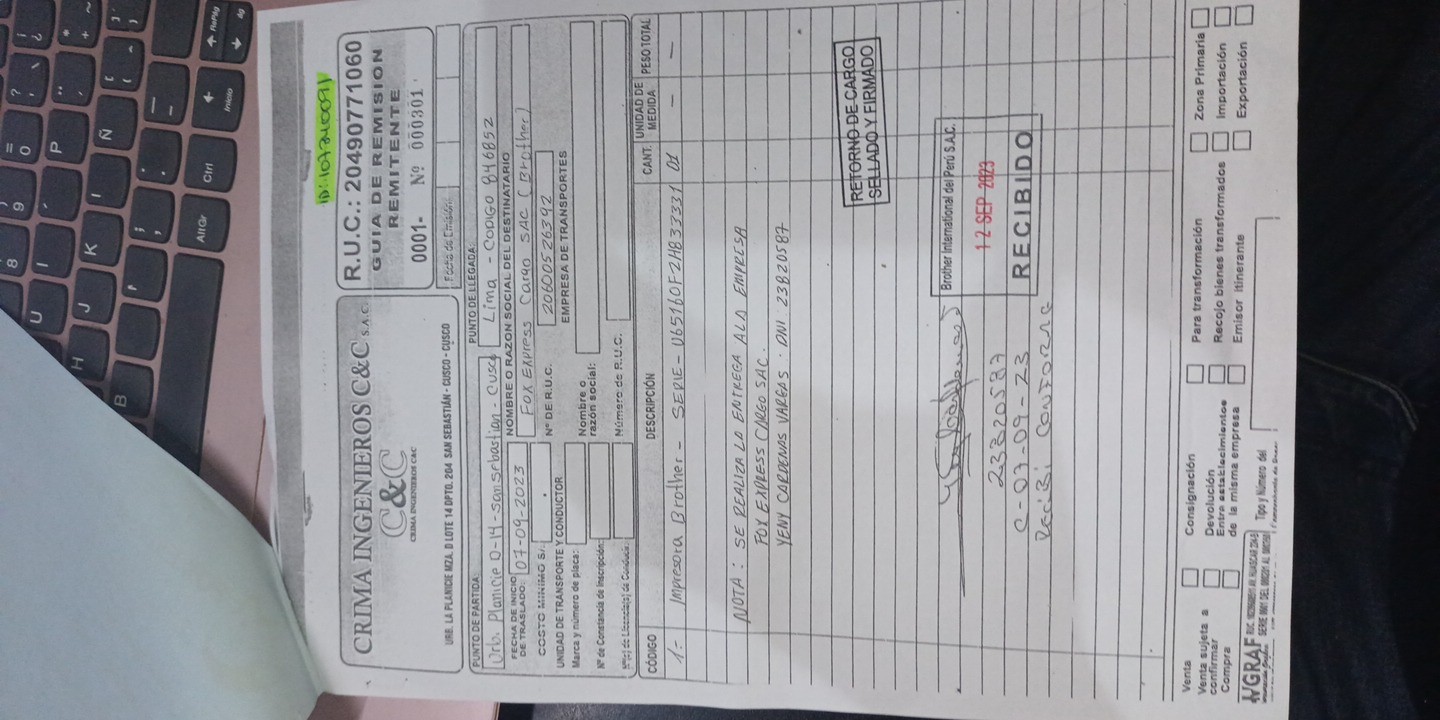 ID: 107240091
CRIMA INGENIEROS C&C S.A.C.
C&C
CRIMA INGENIEROS C&C
URB. LA PLANICIE MZA. D LOTE 14 DPTO. 204 SAN SEBASTIÁN - CUSCO - CUSCO
R.U.C.: 20490771060
GUIA DE REMISION
REMITENTE
0001- Nº 000301
Fecha de Emisión
PUNTO DE PARTIDA:
Urb. Planicie D-14-San Sebastian-Cusco
PUNTO DE LLEGADA:
Lima - CODIGO 846852
FECHA DE INICIO
DE TRASLADO:
07-09-2023
NOMBRE O RAZÓN SOCIAL DEL DESTINATARIO
FOX Express Cargo SAC (Brother)
COSTO MINIMO S/.
Nº DE R.U.C.
20600526392
UNIDAD DE TRANSPORTE Y CONDUCTOR
EMPRESA DE TRANSPORTES
Marca y número de placa:
Nombre o
razón social:
Nº de Constancia de Inscripción:
Nº(s) de Licencia(s) de Conducir
Número de R.U.C.
CÓDIGO DESCRIPCIÓN CANT. UNIDAD DE MEDIDA PESO TOTAL
1.- Impresora Brother - SERIE - U65160F2H833331 01 — —
NOTA: SE REALIZA LA ENTREGA A LA EMPRESA
FOX EXPRESS CARGO SAC.
YENY CARDENAS VARGAS. DNI. 23820587
RETORNO DE CARGO
SELLADO Y FIRMADO
Brother International del Perú S.A.C.
12 SEP 2023
RECIBIDO
23820587
C-07-09-23
Recibi Conforme
Venta
Venta sujeta a
confirmar
Compra
Consignación
Devolución
Entre establecimientos
de la misma empresa
Para transformación
Recojo bienes transformados
Emisor itinerante
Zona Primaria
Importación
Exportación
Tipo y Número del